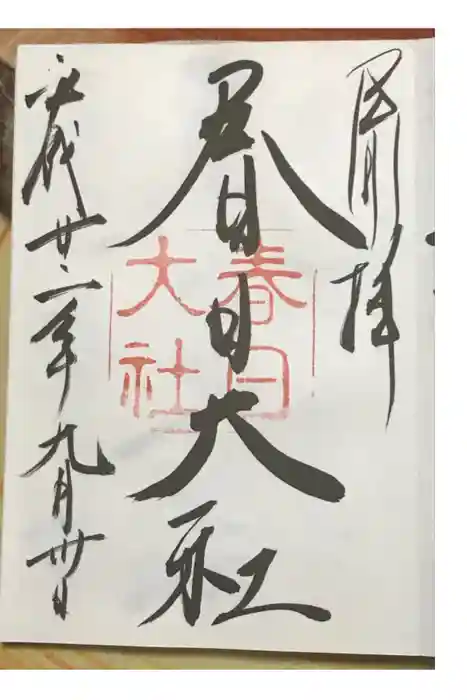 奉拝
春日大社
平成廿二年九月卅日
春日
大社